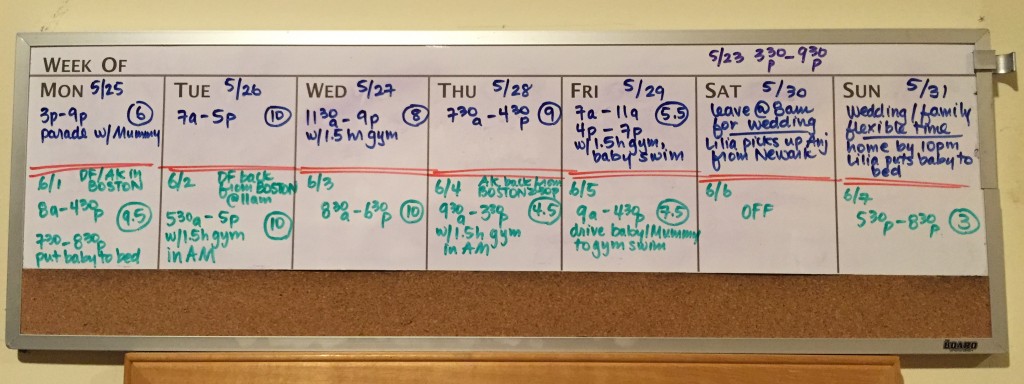 WEEK OF
5/23 3 30p - 9 30p
MON 5/25
3p-9p 6
parade w/Mummy
TUE 5/26
7a-5p 10
WED 5/27
11 30a - 9p 8
w/1.5 hr gym
THU 5/28
7 30a - 4 30p 9
FRI 5/29
7a - 11a 5.5
4p - 7p
w/1.5h gym,
baby swim
SAT 5/30
leave @ 8am
for wedding
Lilia picks up Anj
from Newark
SUN 5/31
wedding/family
flexible time
home by 10pm
Lilia puts baby to
bed
6/1 DF/AK in
BOSTON
8a-4 30p 9.5
7 30-8 30p
put baby to bed
6/2 DF back
from BOSTON
@11am
5 30a - 5p
w/1.5h gym 10
in AM
6/3
8 30a - 6 30p 10
6/4 AK back from
BOSTON 230p
9 30a - 3 30p 4.5
w/1.5h gym
in AM
6/5
9a - 4 30p 7.5
drive baby/Mummy
to gym swim
6/6
OFF
6/7
5 30p - 8 30p 3
THE BOARD